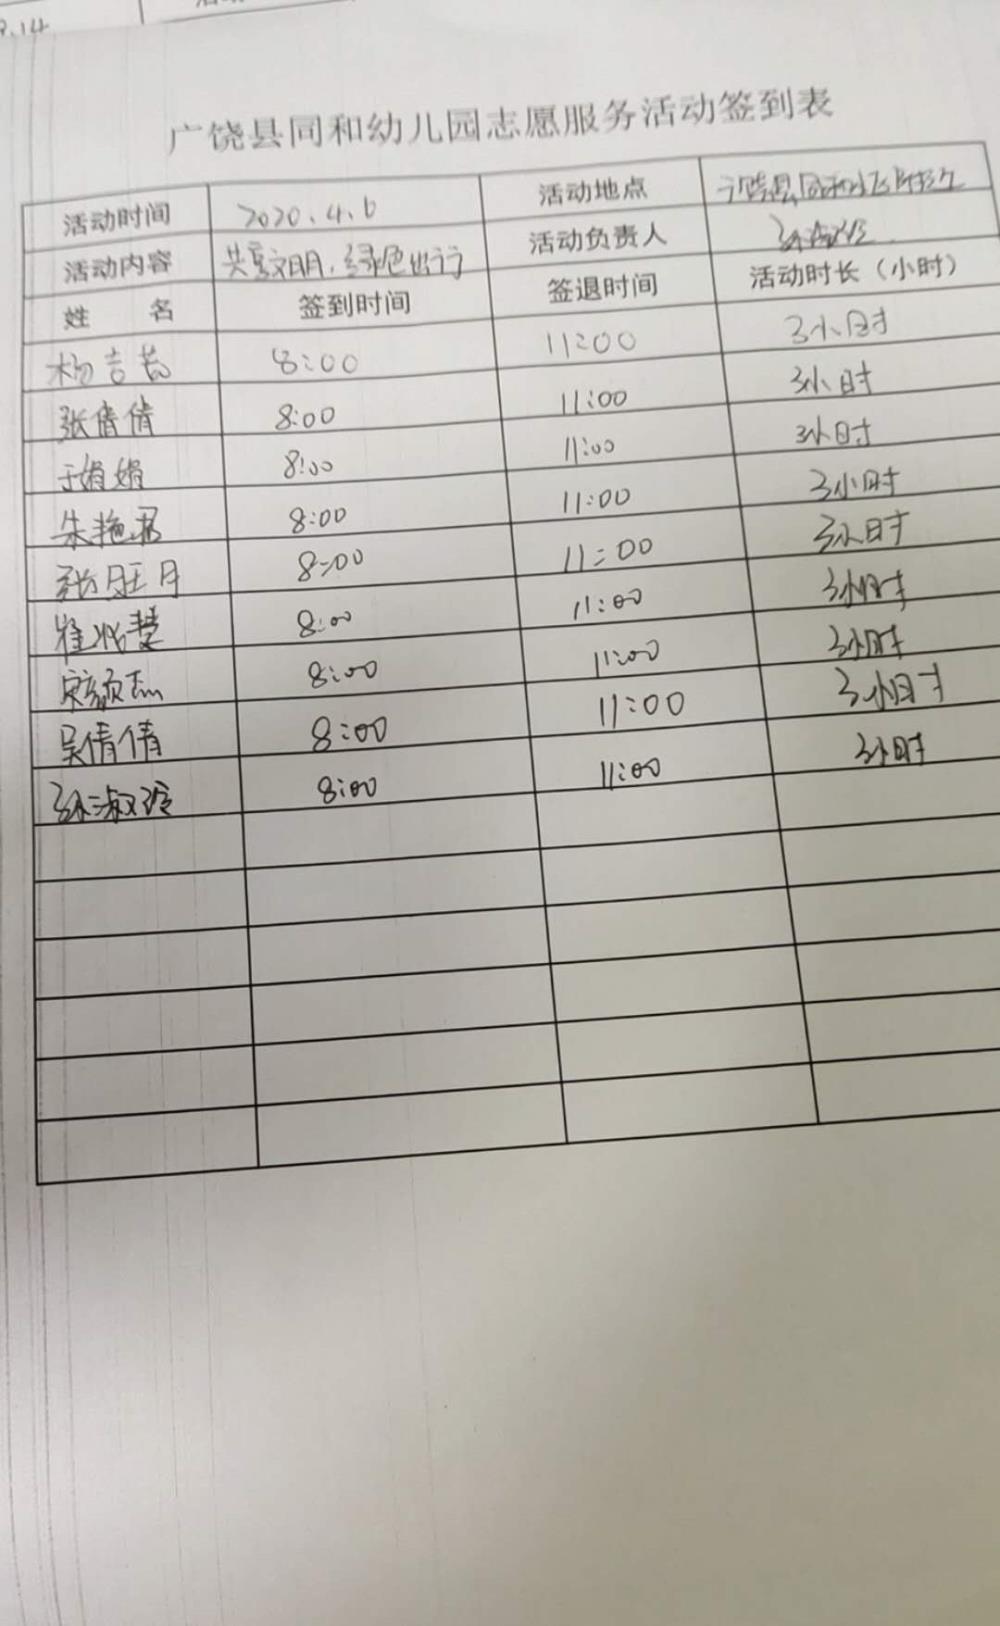 9.14
广饶县同和幼儿园志愿服务活动签到表
活动时间 2020.4.6 活动地点 广饶县同和小区附近
活动内容 共享文明,绿色出行 活动负责人
姓 名 签到时间 签退时间 活动时长(小时)
杨吉芸 8:00 11:00 3小时
张倩倩 8:00 11:00 3小时
于娟娟 8:00 11:00 3小时
朱艳君 8:00 11:00 3小时
张旺月 8:00 11:00 3小时
8:00 11:00 3小时
8:00 11:00 3小时
吴倩倩 8:00 11:00 3小时
孙淑玲 8:00 11:00 3小时